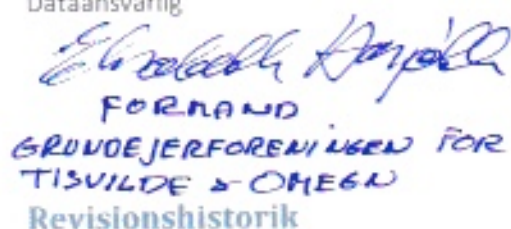 Dataansvarlig
Elisabeth
FORMAND
GRUNDEJERFORENINGEN FOR
TISVILDE & OMEGN
Revisionshistorik